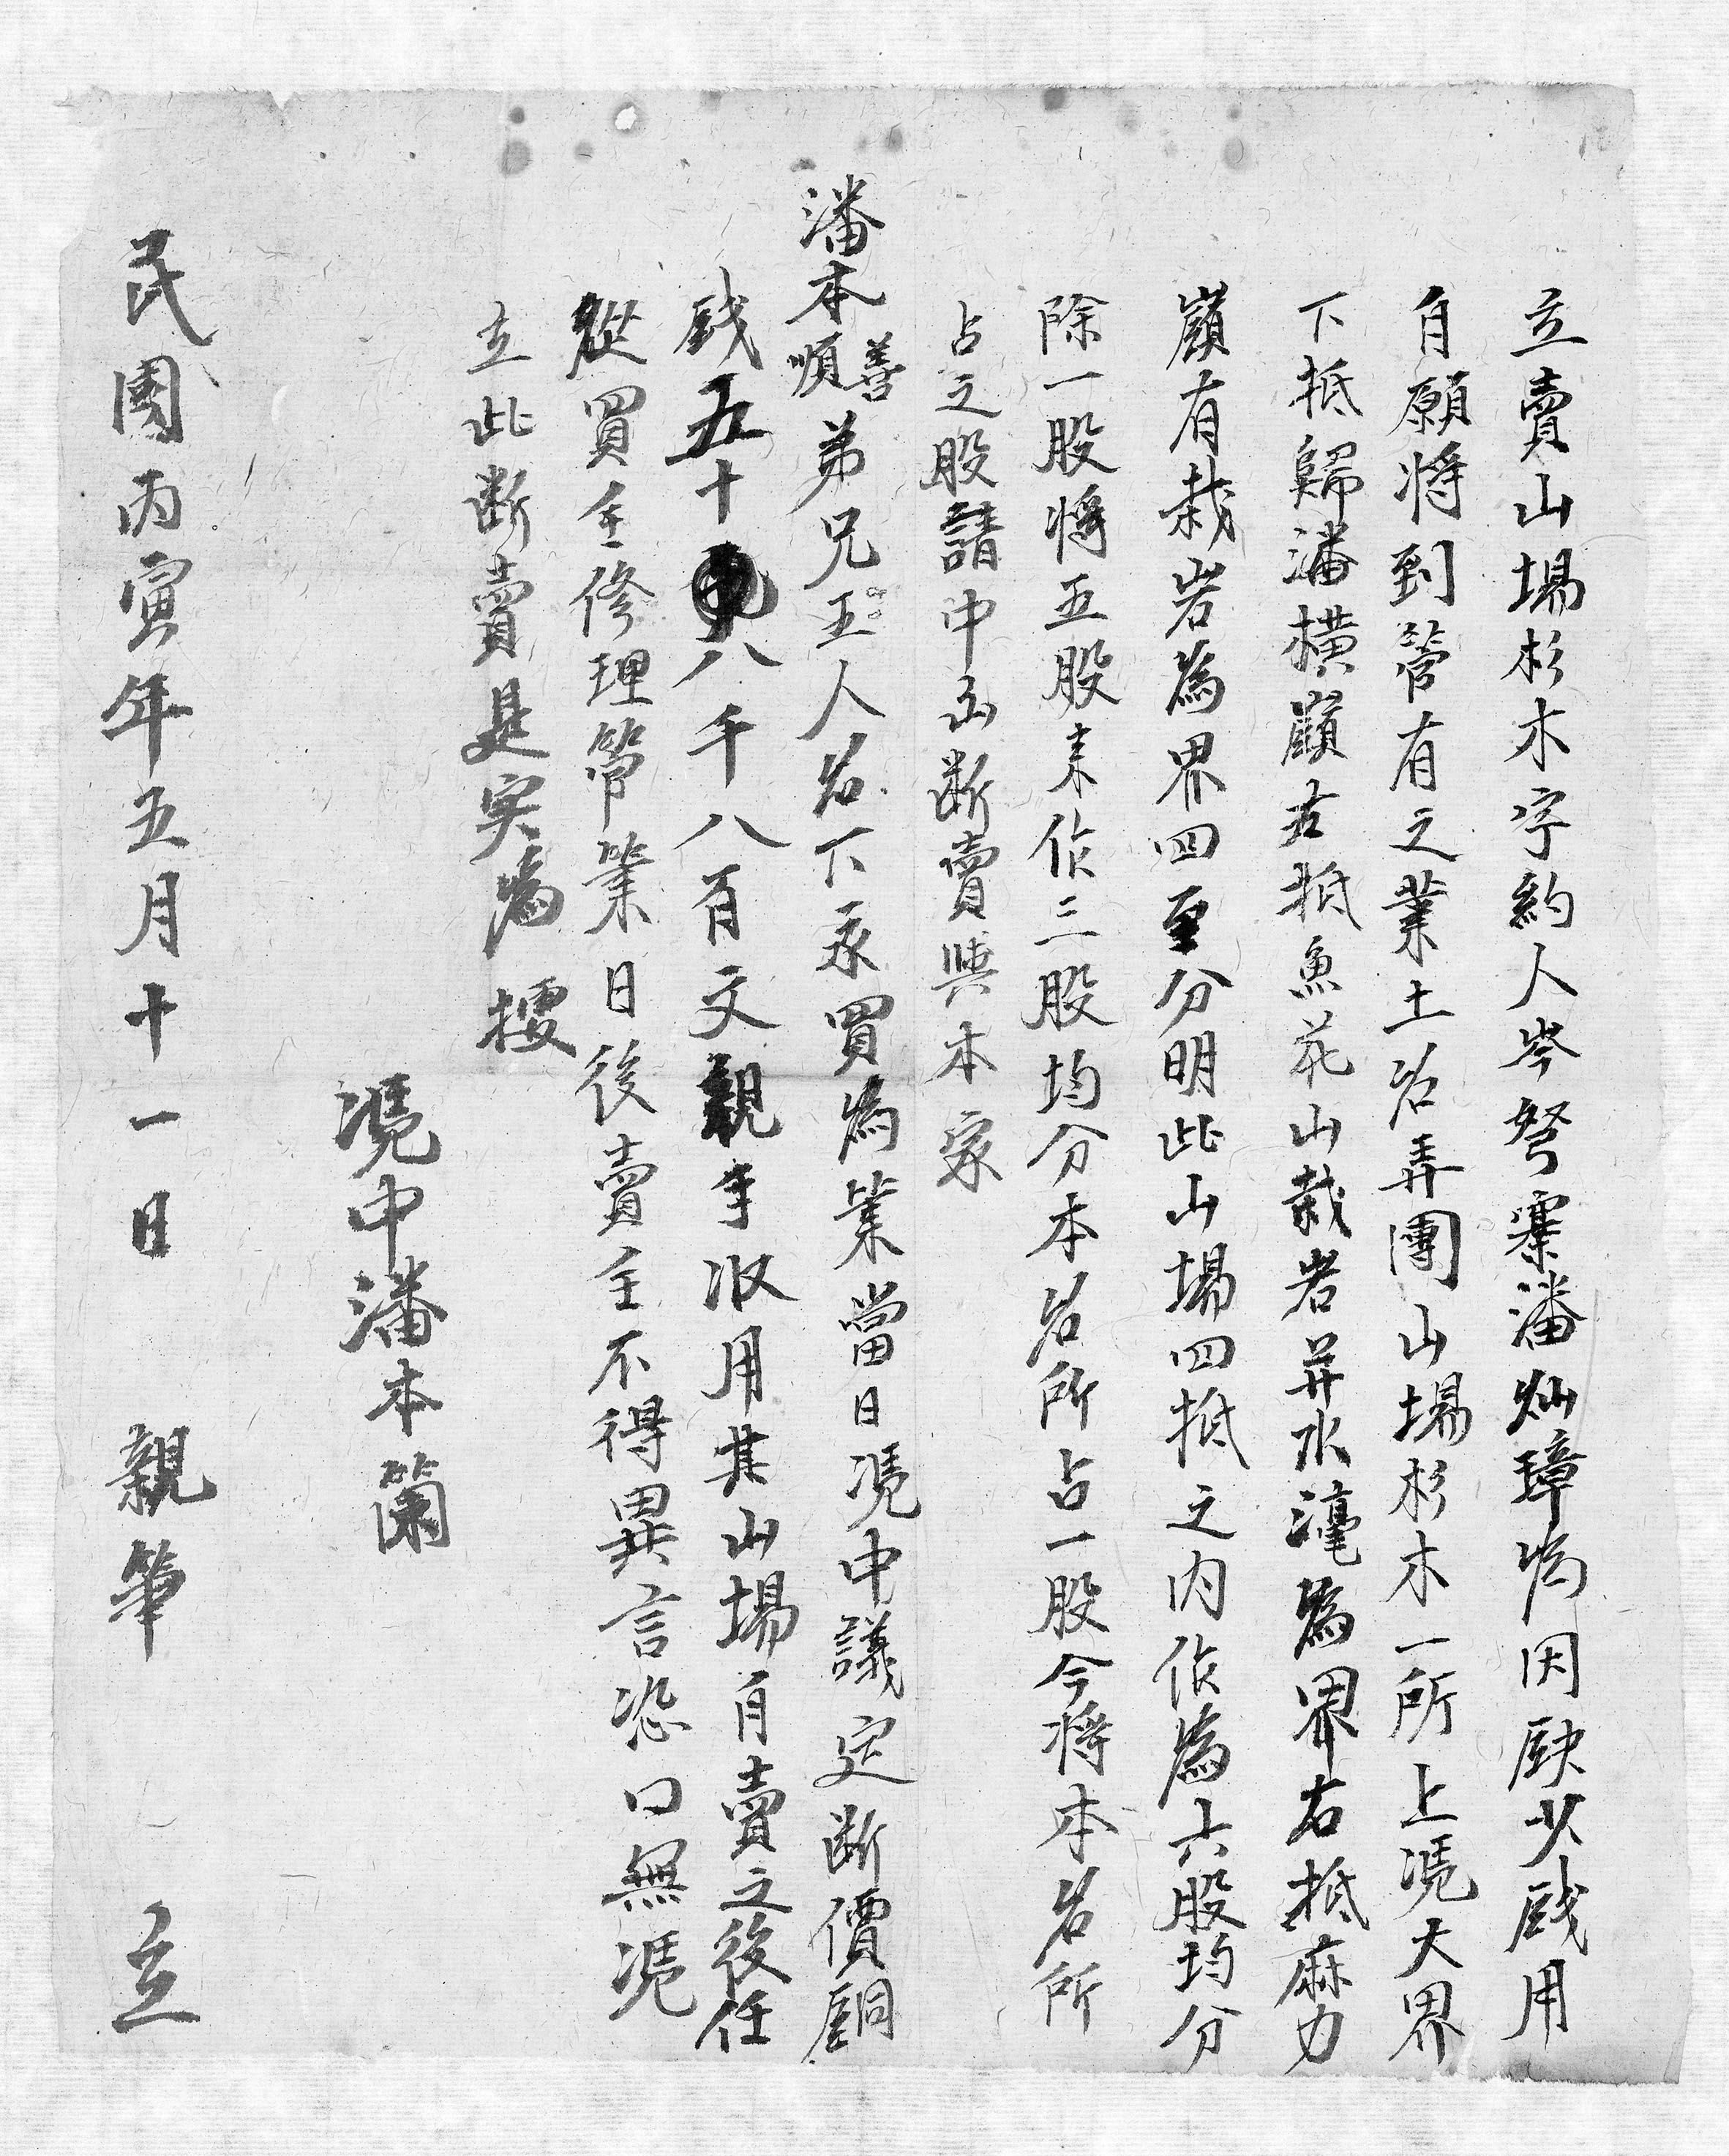 立賣山場杉木字約人岑努寨潘灿璋為因缺少戋用
自願將到管有之業土名弄團山場杉木一所上凴大界
下抵歸潘橫嶺左抵魚花山栽岩并水濠為界右抵麻力
嶺有栽岩為界四至分明此山場四抵之内作為六股均分
除一股將五股来作三股均分本名所占一股今將本名所
占之股請中出断賣與本家
潘本順善弟兄王人名下承買為業當日凴中議定断價銅
戋五十八千八百文親手收用其山場自賣之後任
從買主修理管業日後賣主不得異言恐口無凴
立此断賣是实為據
凴中潘本蘭
民國丙寅年五月十一日 親筆 立